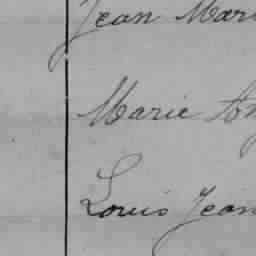 Jean Mari
Marie An
Louis Jean